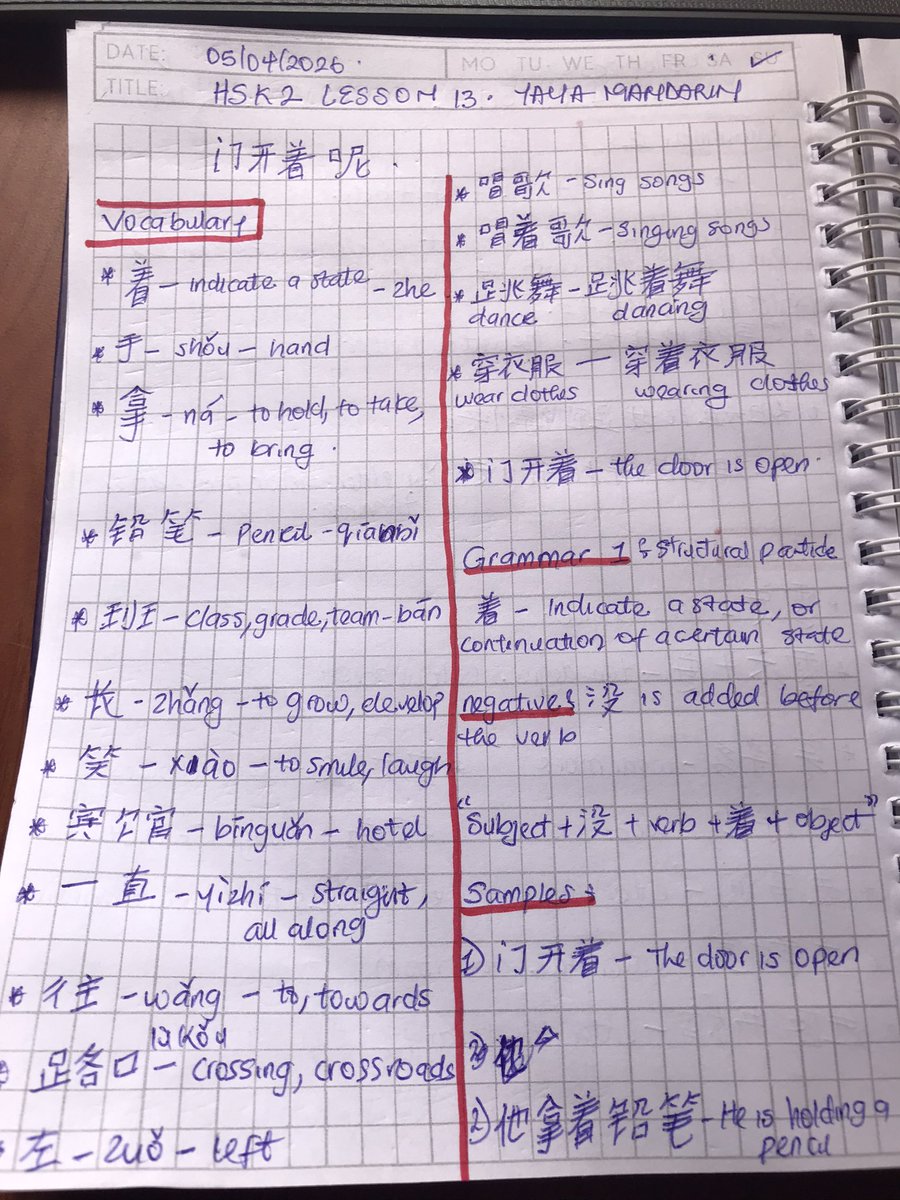 DATE: 05/04/2026. MO TU WE TH FR SA SU
TITLE: HSK2 LESSON 13. YAYA MANDARIN
门开着呢.
Vocabulary
* 着 - indicate a state - zhe
* 手 - shǒu - hand
* 拿 - ná - to hold, to take,
to bring.
* 铅笔 - Pencil - qiānbǐ
* 班 - class, grade, team - bān
* 长 - zhǎng - to grow, develop
* 笑 - xiào - to smile, laugh
* 宾馆 - bīnguǎn - hotel
* 一直 - yìzhí - straight,
all along
* 往 - wǎng - to, towards
lùkǒu
* 路口 - crossing, crossroads
* 左 - zuǒ - left
* 唱歌 - Sing songs
* 唱着歌 - singing songs
* 跳舞 - 跳着舞
dance dancing
* 穿衣服 - 穿着衣服
wear clothes wearing clothes
* 门开着 - the door is open.
Grammar 1: structural particle
着 - indicate a state, or
continuation of a certain state
negatives 没 is added before
the verb
"Subject + 没 + verb + 着 + object"
Samples:
1) 门开着 - The door is open
2) 他拿着铅笔 - He is holding a
pencil